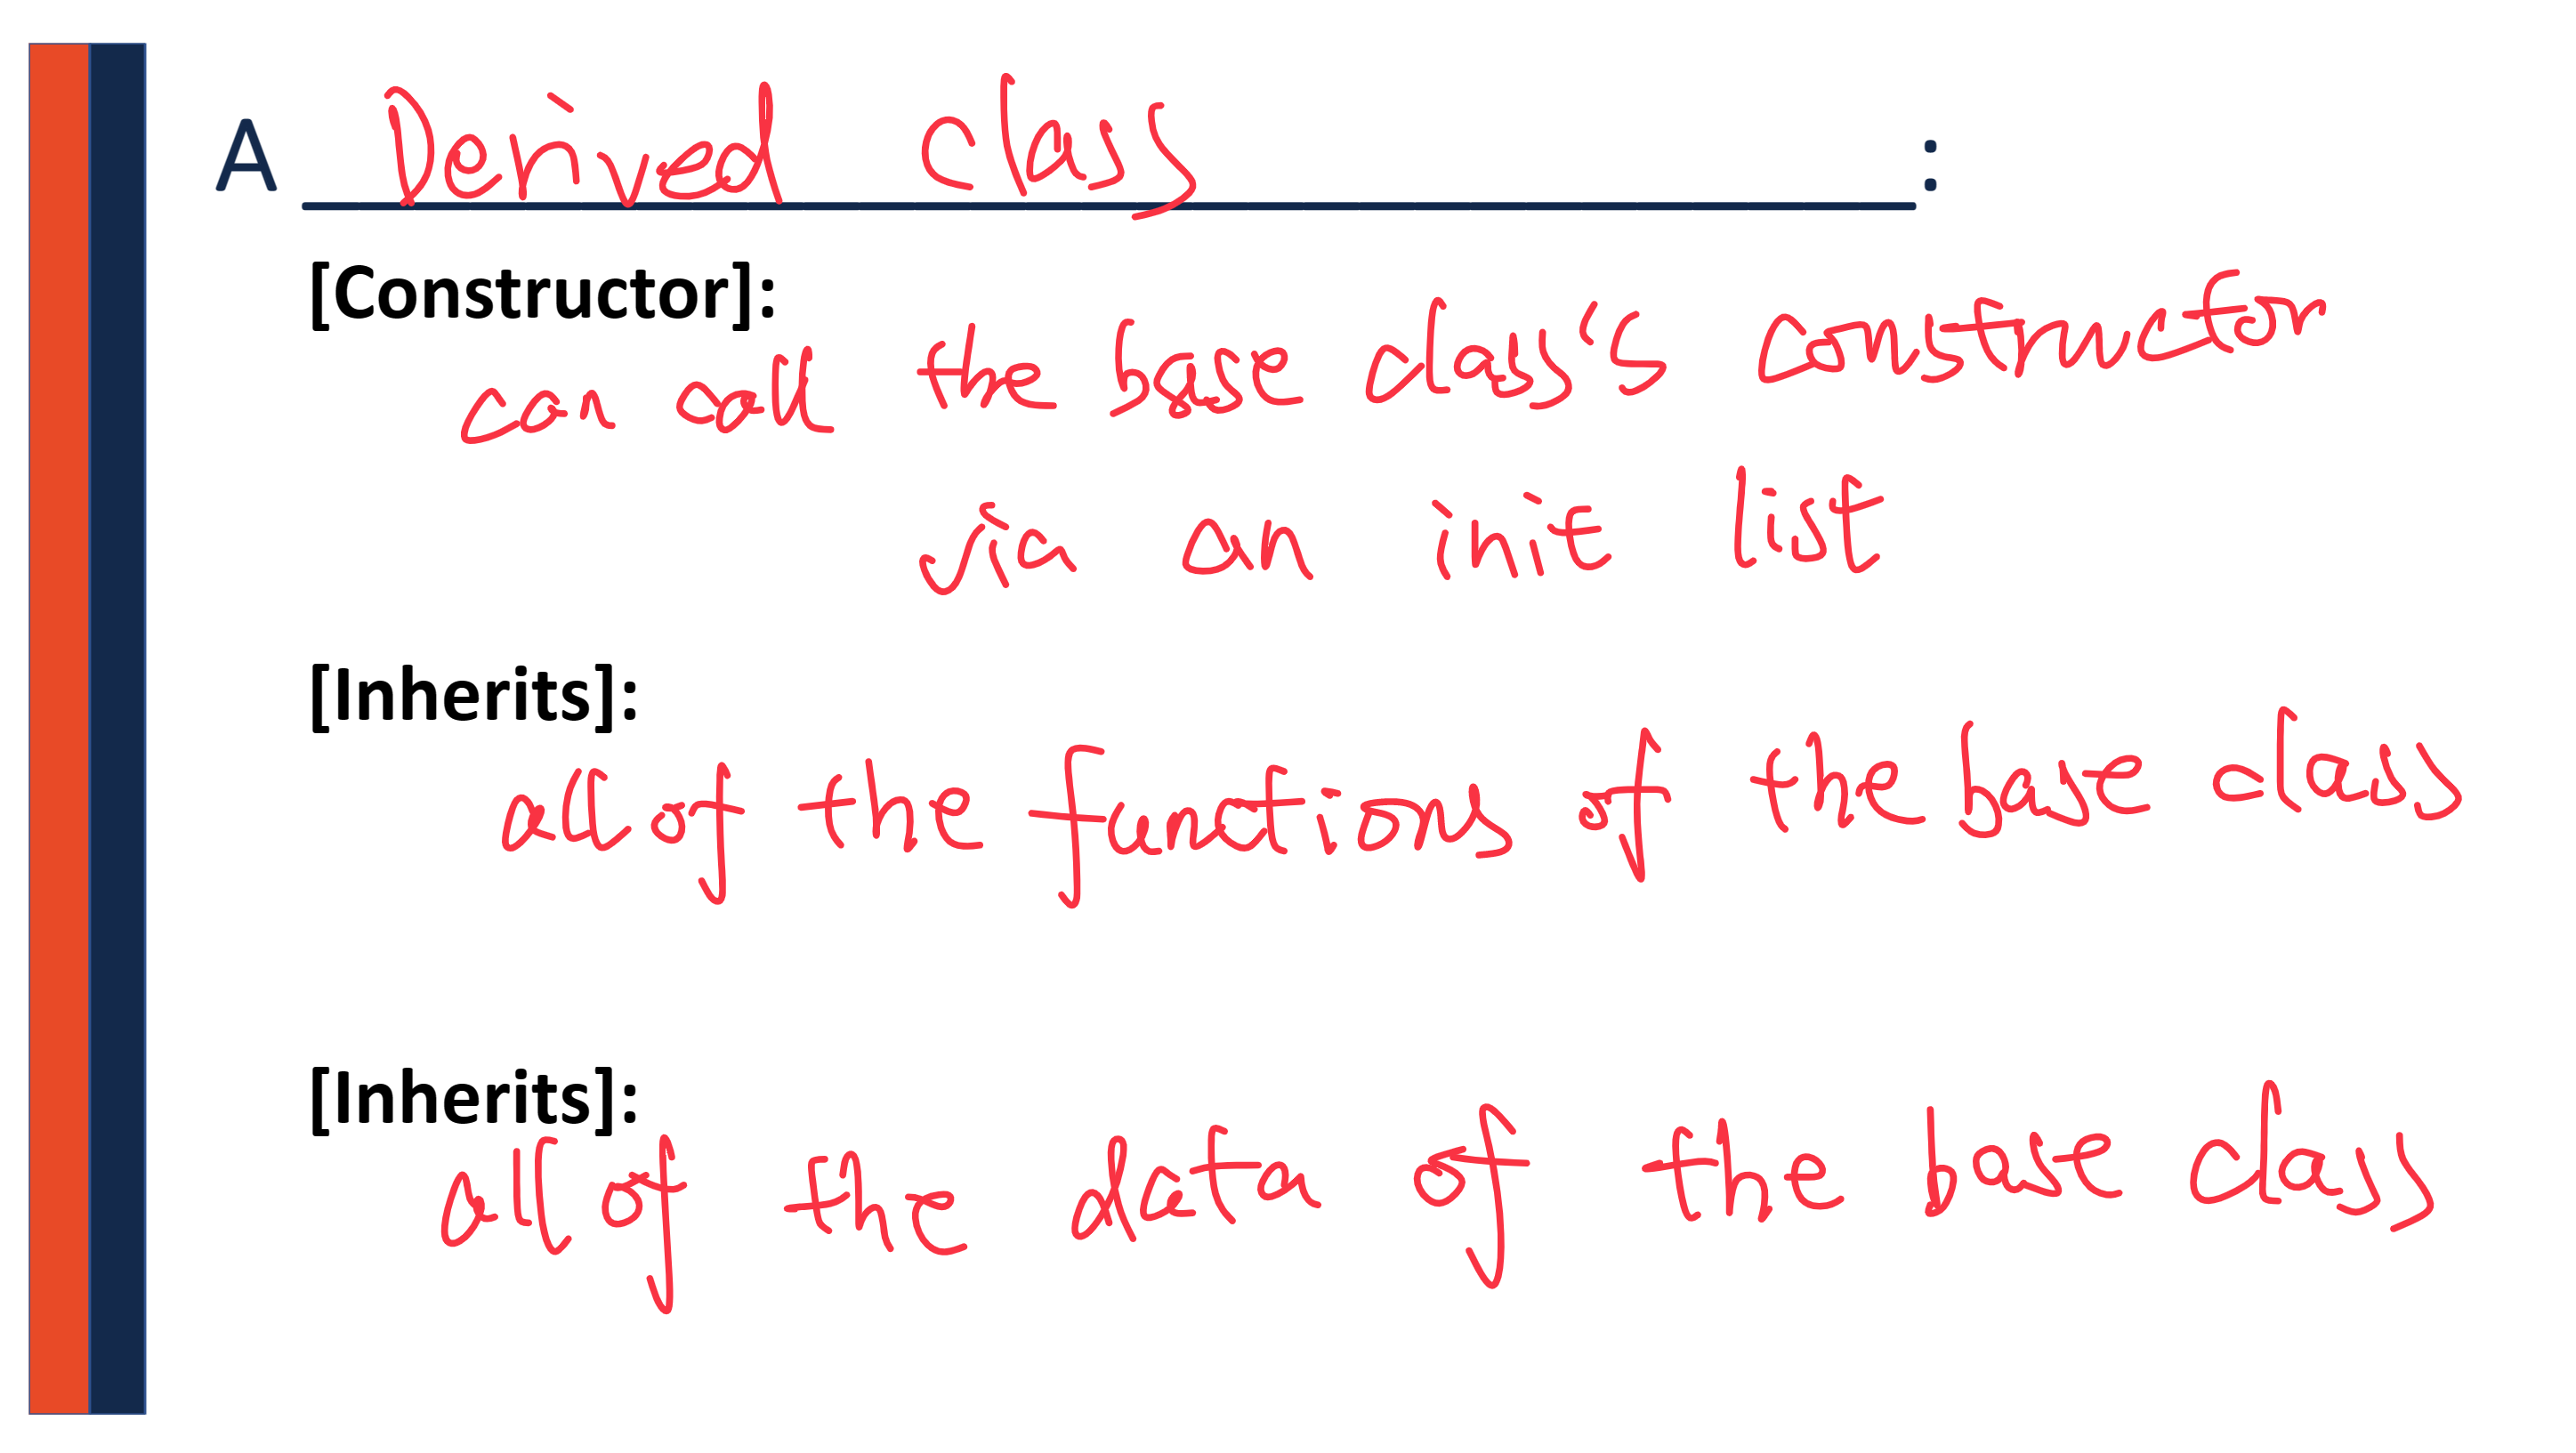 A Derived class:
[Constructor]:
can call the base class's constructor
via an init list
[Inherits]:
all of the functions of the base class
[Inherits]:
all of the data of the base class